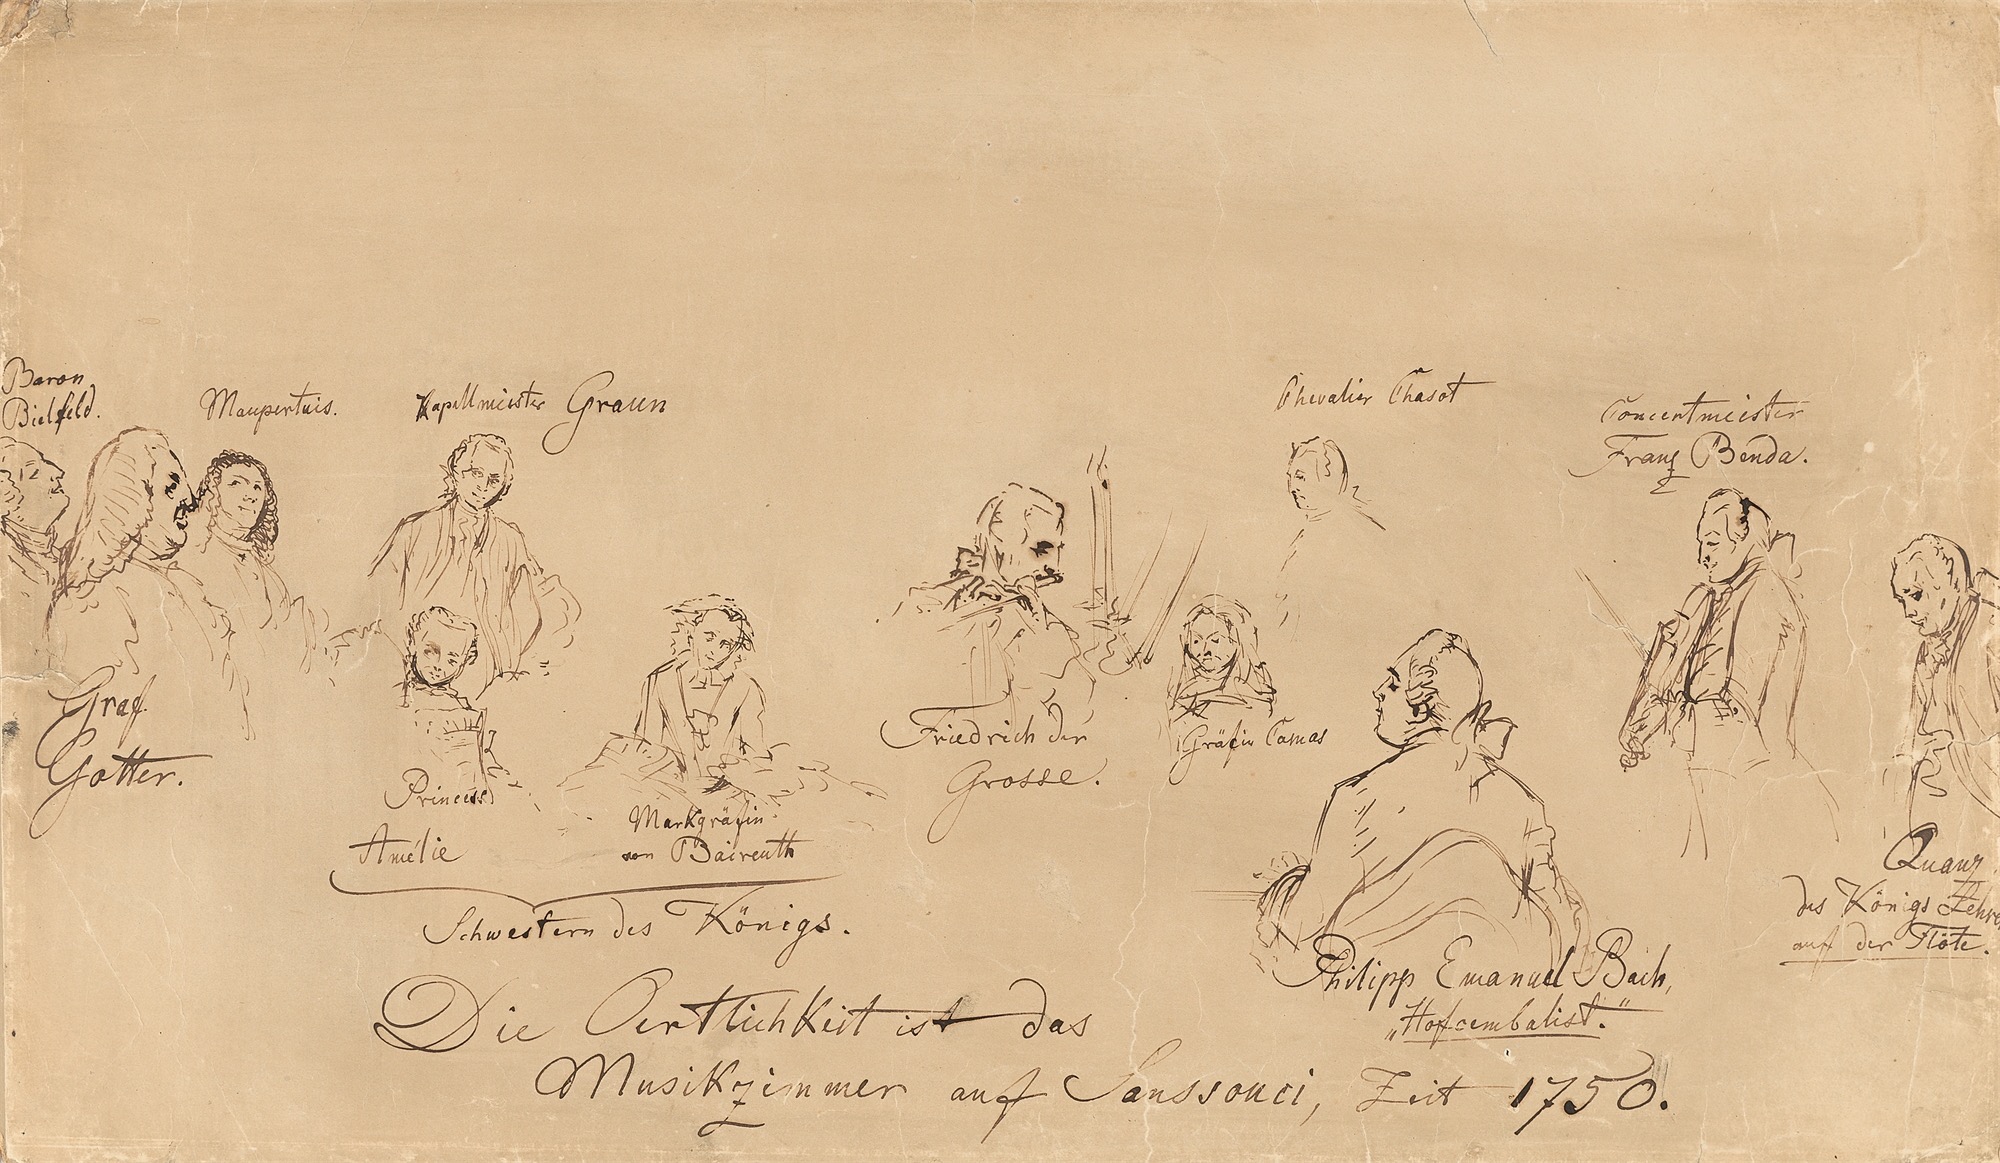 Baron
Bielfeld.
Maupertuis.
Kapellmeister Graun
Chevalier Chasot
Concertmeister
Franz Benda.
Graf
Gotter.
Princess
Amélie
Markgräfin
von Baireuth
Schwestern des Königs.
Friedrich der
Grosse.
Gräfin Camas
Philipp Emanuel Bach,
„Hofcembalist."
Quanz
des Königs Lehrer
auf der Flöte.
Die Oertlichkeit ist das
Musikzimmer auf Sanssouci, Zeit 1750.